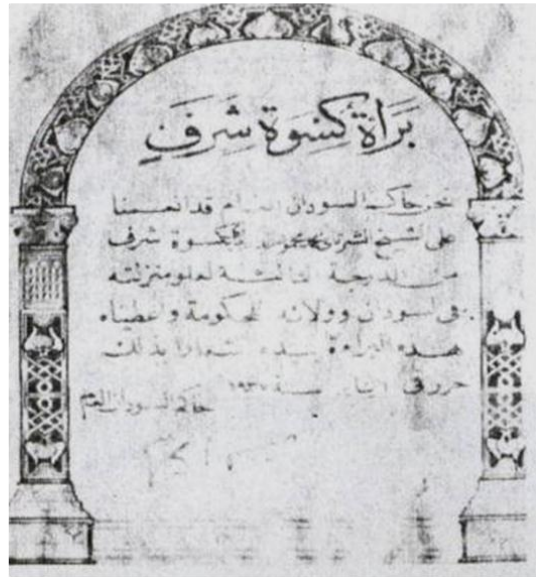 بَرَاةُ كِسْوَةِ شَرَفٍ
نحن حاكم السودان العام قد انعمنا
على الشيخ بكسوة شرف
من الدرجة الثالثة لعلو منزلته
في السودان وولائه للحكومة واعطيناه
هذه البراءة بيده اشعارا بذلك
حرر في يناير سنة
حاكم السودان العام